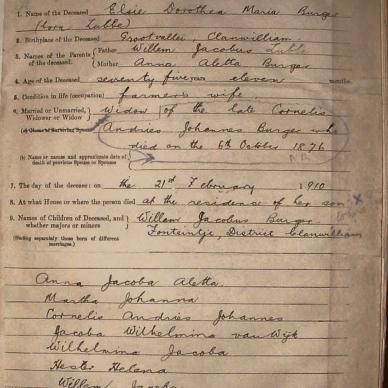 1. Name of the Deceased Elsie Dorothea Maria Burger
(born Lubbe)
2. Birthplace of the Deceased Grootvallei, Clanwilliam.
3. Names of the Parents of the deceased. Father Willem Jacobus Lubbe
Mother Anna Aletta Burger
4. Age of the Deceased seventy five years eleven months.
5. Condition in life (occupation) farmer's wife
6. Married or Unmarried, Widower or Widow Widow of the late Cornelis
(a) Name of Surviving Spouse Andries Johannes Burger who
died on the 6th October 1876
(b) Name or names and approximate date of death of previous Spouse or Spouses
N.B.
7. The day of the decease: on the 21st February 1910
8. At what House or where the person died at the residence of her son
9. Names of Children of Deceased, and whether majors or minors Willem Jacobus Burger
Fonteintje, District Clanwilliam
(Stating separately those born of different marriages.)
Anna Jacoba Aletta.
Martha Johanna
Cornelis Andries Johannes
Jacoba Wilhelmina van Wijk
Wilhelmina Jacoba
Hester Helena
Willem Jacobus